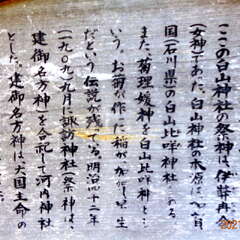 ここの白山神社の祭神は、伊弉冉命
(女神)であった。白山神社の本原は、加賀
国(石川県)の白山比咩神社である
また、菊理媛神を白山比咩神と
いう。お苗が作に稲が加賀早生
だという伝説が残っている。明治四十二年
(一九〇九)九月に諏訪神社(祭神は、
建御名方神)を合祀して河内神社
とした。建御名方神は大国主命の
202